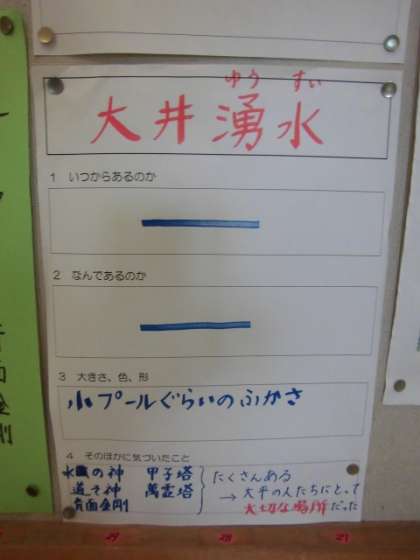 ゆうすい
大井湧水
1 いつからあるのか
2 なんであるのか
3 大きさ、色、形
小プールぐらいのふかさ
4 そのほかに気づいたこと
の神 甲子塔
道そ神 萬霊塔
青面金剛
たくさんある
→ 大平の人たちにとって
大切な場所だった
面金剛
29 28 27